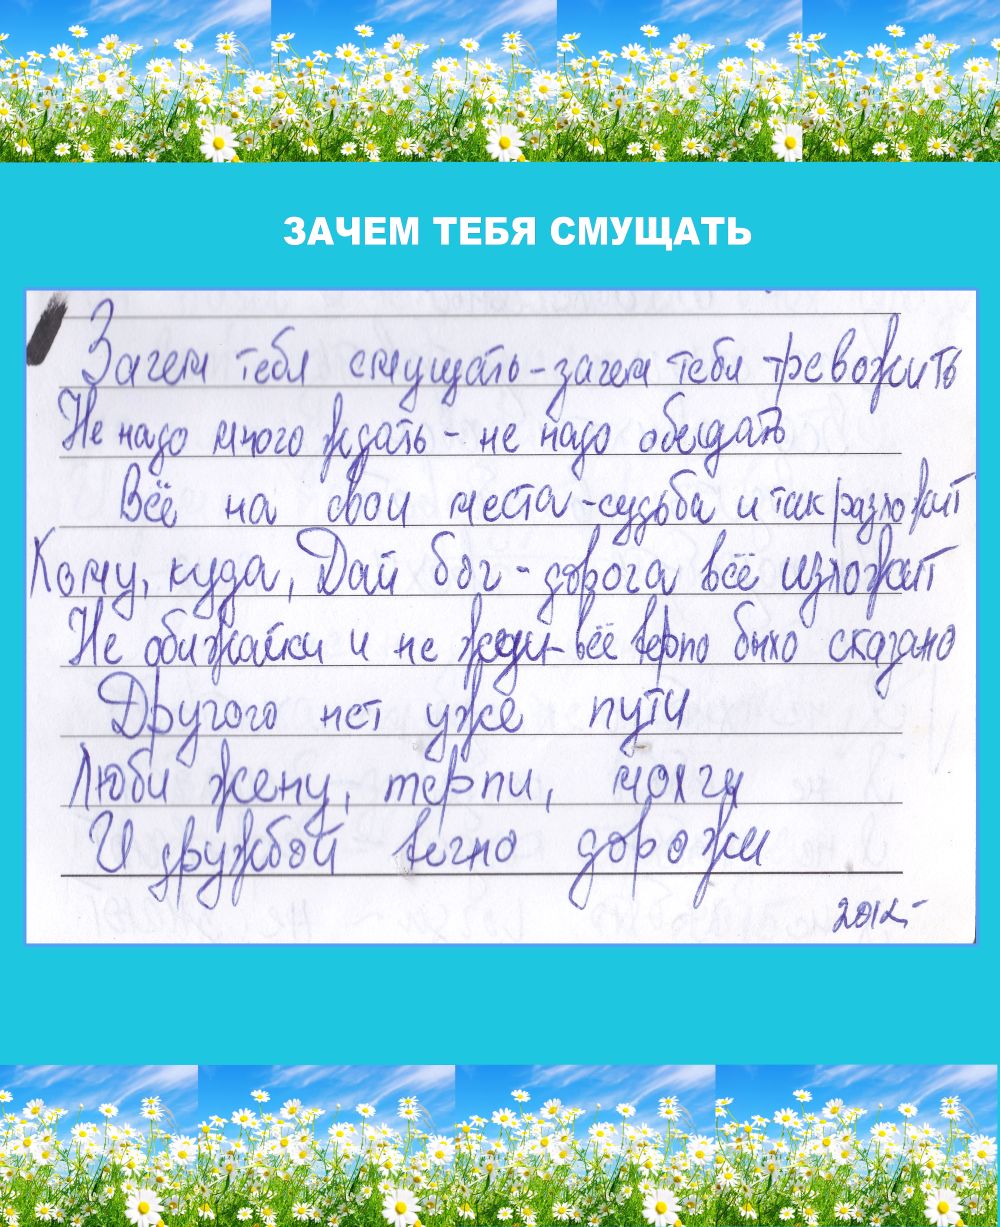 ЗАЧЕМ ТЕБЯ СМУЩАТЬ
Зачем тебя смущать - зачем тебя тревожить
Не надо много ждать - не надо обещать
Всё на свои места - судьба и так разложит
Кому, куда, Дай бог - дорога всё изложит
Не обижайки и не жди - всё верно было сказано
Другого нет уже пути
Люби жену, терпи, молчи
И дружбой вечно дорожи
2012г